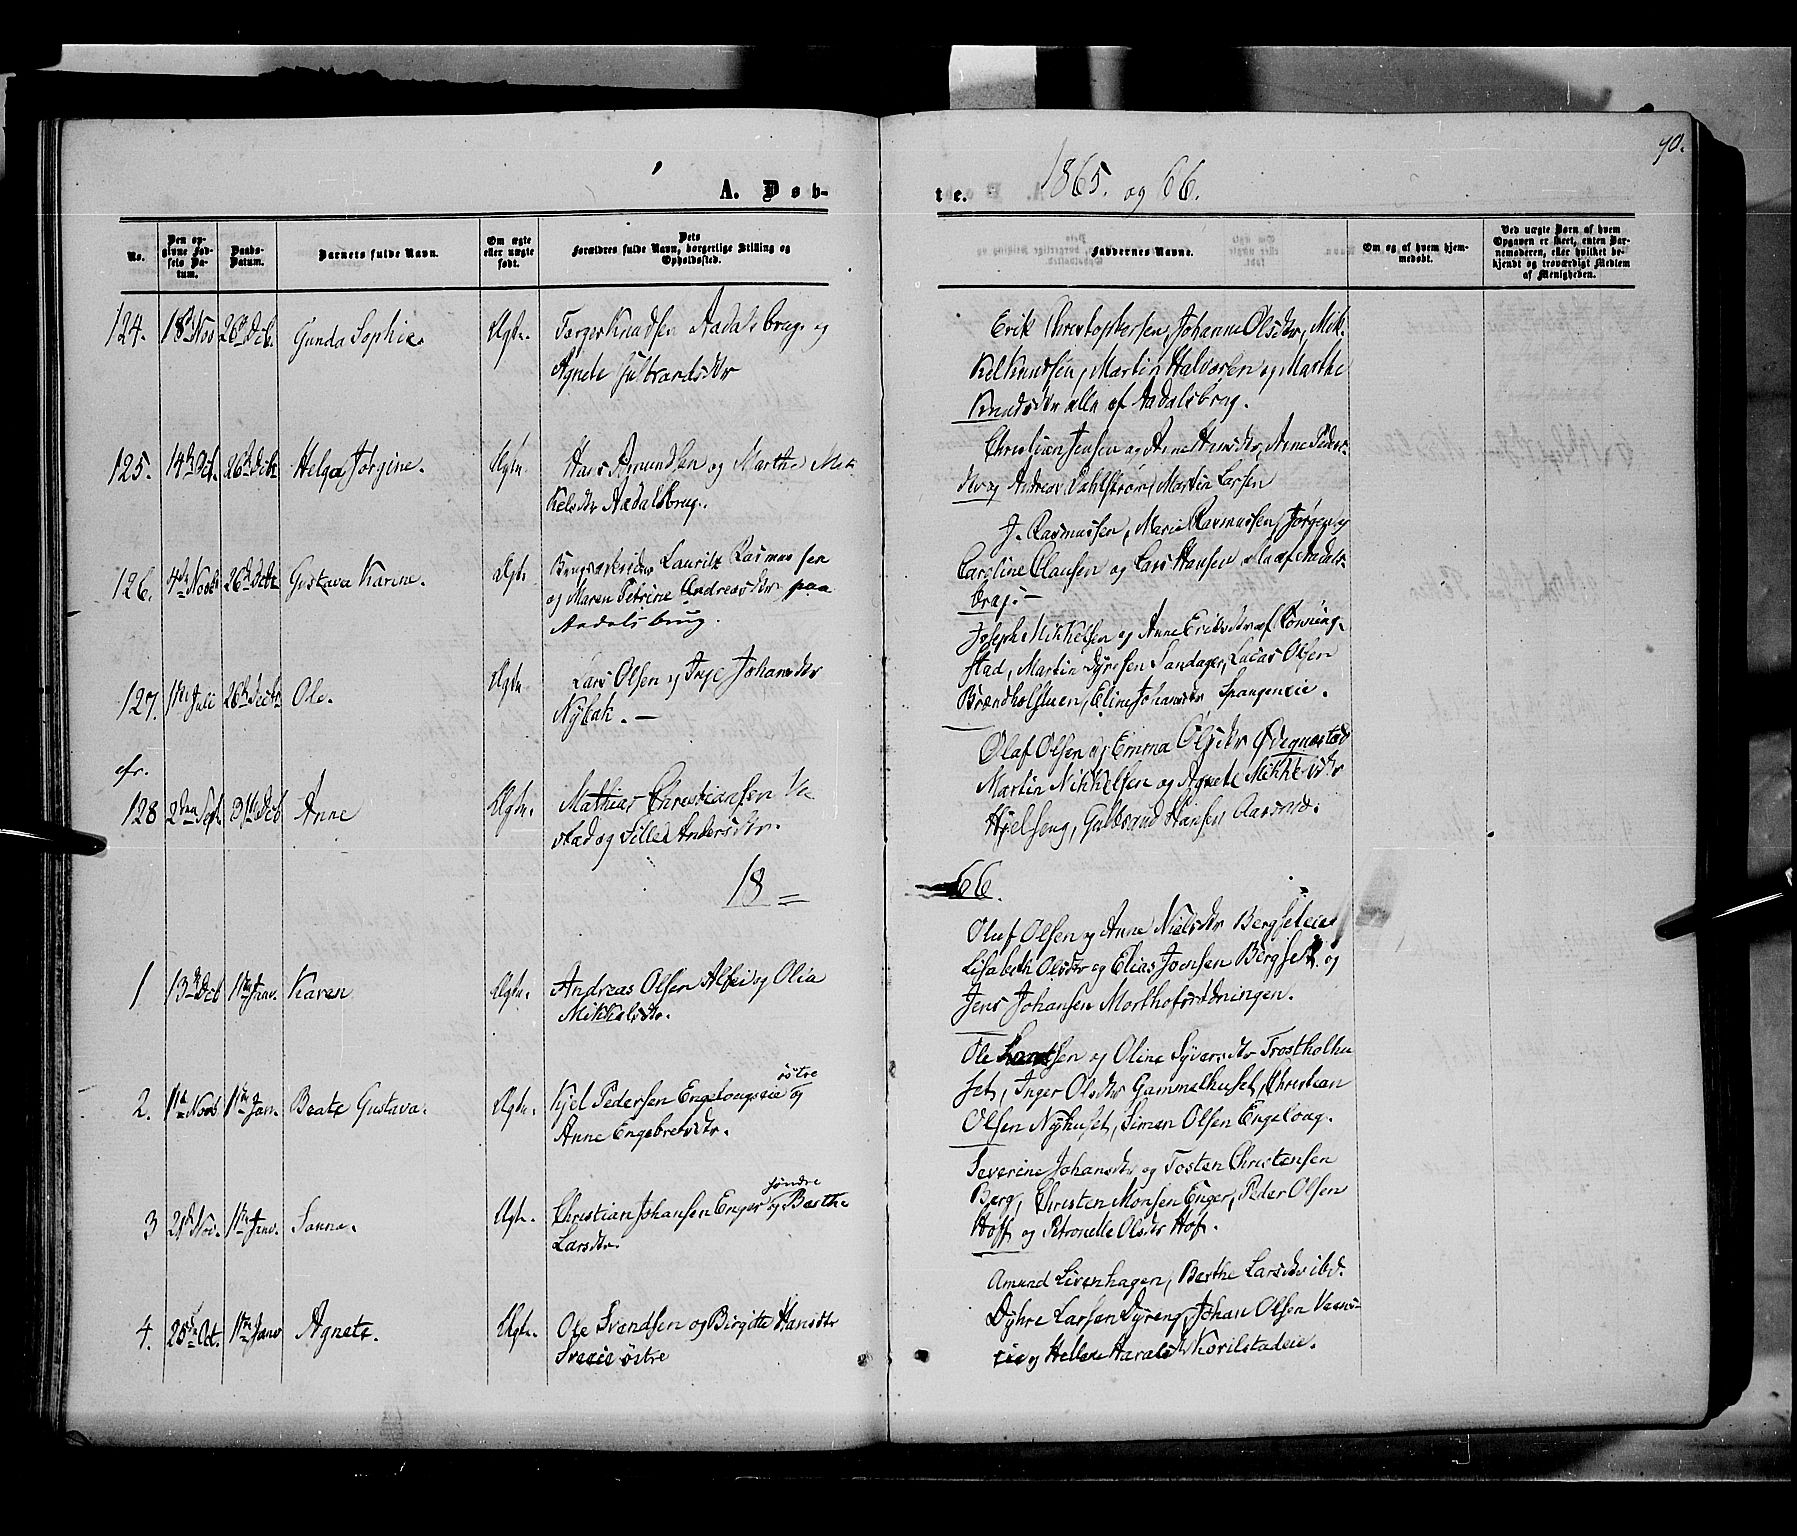 90.
A. Døb-
te.
1865. og 66.
No.
Den op-
givne Fød-
sels Da-
tum.
Daabs-
Datum.
Barnets fulde Navn.
Om ægte
eller uægte
født.
Dets
Forældres fulde Navn, borgerlige Stilling og
Opholdssted.
Faddernes Navne.
Om og af hvem hjem-
medøbt.
Ved uægte Børn af hvem
Opgaven er skeet, enten Bar-
nemoderen, eller hvilket be-
kjendt og troværdigt Medlem
af Menigheden.
124. 18de Nov 26de Dcb. Gunda Sophie. Ægte. Torger Knudsen Aadalsbrug og
Agnete Gulbrandsdtr
Erik Christophersen, Johanne Olsdtr, Mik-
kel Knudsen, Martin Halvorsen og Marthe
Knudsdtr alle af Aadalsbrug.
125. 14de Dcb. 26de Dcb Helga Jørgine. Ægte Hans Amundsen og Marthe Mik-
kelsdtr Aadalsbrug.
Christian Jensen og Anne Hansdtr, Anne Peders-
dtr og Andreas Dahlstrøm, Martin Larsen
126. 4de Novb 26de Dcb Gustava Karine. Ægte Brugsarbeider Laurits Rasmussen
og Maren Petrine Andreasdtr paa
Aadalsbrug.
J. Rasmussen, Marie Rasmussen, Jørgen og
Caroline Clausen og Lars Hansen alle af Aadals-
brug. —
127. 1ste Juli 26de Decbr Ole. Ægte Lars Olsen og Inge Johansdtr
Nybak. —
Joseph Mikkelsen og Anne Eriksdtr af Rønning-
stad, Martin Syversen Sandager, Lucas Olsen
Brændholstuen, Eline Johansdtr Spangeneie.
efr.
128 2den Sept. 31te Dcb Anne Ægte. Mathias Christiansen Ve-
stad og Sille Andersdtr.
Olaf Olsen og Emma Olsdtr Ødegaardstad
Martin Mikkelsen og Agnete Mikkelsdtr
Hjelseng, Gulbrand Hansen Aasvand.
18 =
66.
1 13de Dcb 1ste Janv. Karen Ægte. Andreas Olsen Alfei og Olia
Mikkelsdtr.
Oluf Olsen og Anne Nielsdtr Bergseteie
Lisabeth Olsdtr og Elias Joensen Bergset og
Jens Johansen
2. 1ste Novb 1ste Jan. Beate Gustava. Ægte. Kjel Pedersen Engelougseie østre og
Anne Engebretsdtr.
Ole Larsen og Oline Syversdtr Trostholhu-
set, Inger Olsdtr Gammelhuset, Christian
Olsen Nyhuset, Simen Olsen Engeloug.
3 21de Nov. 1ste Janv. Sanna. Ægte. Christian Johansen Enger søndre og Berthe
Larsdtr.
Severine Johansdtr og Tosten Christensen
Berg, Christen Monsen Enger, Peder Olsen
Hoff og Petronelle Olsdtr Hof.
4. 25de Oct. 1ste Janv Agnete. Ægte. Ole Svendsen og Birgitte Hansdtr
østre
Amund Livenhagen, Berthe Larsdtr ibd.
Dyhre Larsen Dyreng, Johan Olsen
og Hellene Haralsd